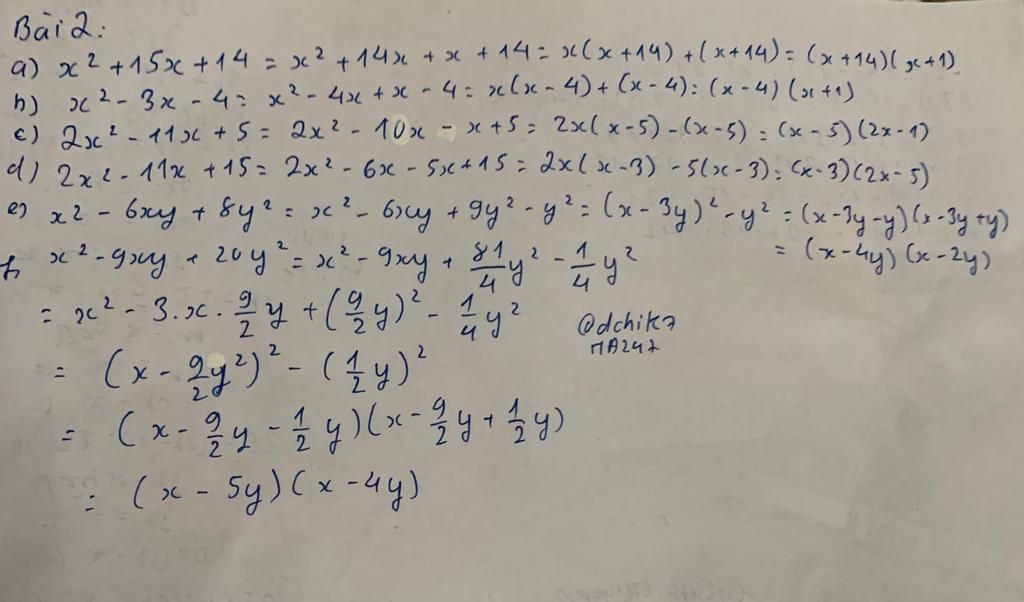 Bài 2:
a) x² + 15x + 14 = x² + 14x + x + 14 = x(x + 14) + (x + 14) = (x + 14)(x + 1)
b) x² - 3x - 4 = x² - 4x + x - 4 = x(x - 4) + (x - 4) = (x - 4)(x + 1)
c) 2x² - 11x + 5 = 2x² - 10x - x + 5 = 2x(x - 5) - (x - 5) = (x - 5)(2x - 1)
d) 2x² - 11x + 15 = 2x² - 6x - 5x + 15 = 2x(x - 3) - 5(x - 3) = (x - 3)(2x - 5)
e) x² - 6xy + 8y² = x² - 6xy + 9y² - y² = (x - 3y)² - y² = (x - 3y - y)(x - 3y + y)
= (x - 4y)(x - 2y)
f, x² - 9xy + 20y² = x² - 9xy + 81/4 y² - 1/4 y²
= x² - 3.x. 9/2 y + (9/2 y)² - 1/4 y²
@dchik7
MA247
= (x - 9/2 y²)² - (1/2 y)²
= (x - 9/2 y - 1/2 y)(x - 9/2 y + 1/2 y)
= (x - 5y)(x - 4y)